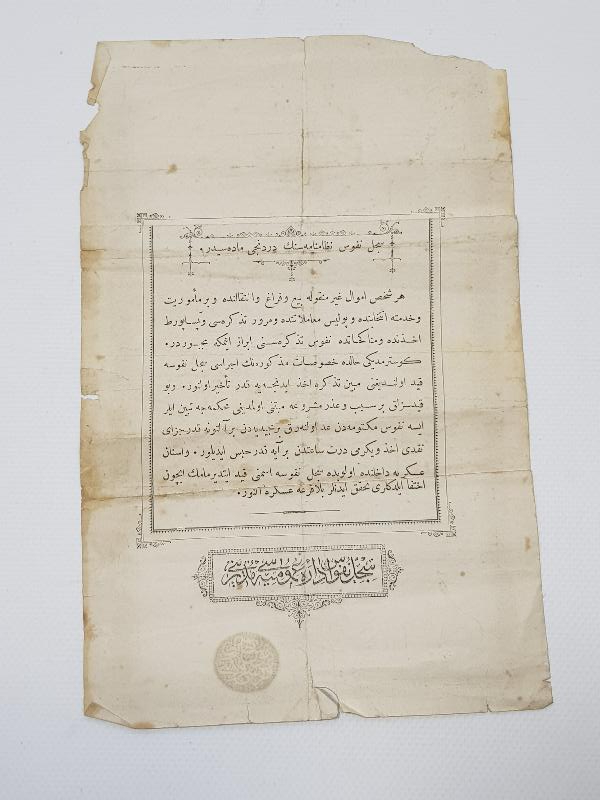 سجل نفوس نظامنامه‌سنك دردنجی ماده‌سیدر.
هر شخص اموال غیر منقوله بیع و فراغ و انتقالنده و بر مأموریت
و خدمته انتخابنده و پولیس معاملاتنده و مرور تذکره‌سی و پساپورط
اخذنده و مناکحاتده نفوس تذکره‌سنی ابراز ایتمکه مجبوردر.
کوسترمدیکی حالده خصوصات مذکوره‌نك اجراسی سجل نفوسه
قید اولندیغنی مبین تذکره اخذ ایدنجه‌یه قدر تأخیر اولنور. و بو
قیدسزلق بر سبب و عذر مشروعه مبتنی اولمدیغی محکمه‌جه تبین ایلر
ایسه نفوس مکتومه‌دن عد اولنه‌رق بر مجیدیه‌دن بر آلتونه قدر جزای
نقدی اخذ و یکرمی درت ساعتدن بر آیه قدر حبس ایدیلور. و اسنان
عسکریه داخلنده اولوبده سجل نفوسه اسمنی قید ایتدیرمامك ایچون
اختفا ایلدکلری تحقق ایدنلر بلاقرعه عسکره آلنور.
سجل نفوس اداره عمومیه سی مدیریتی